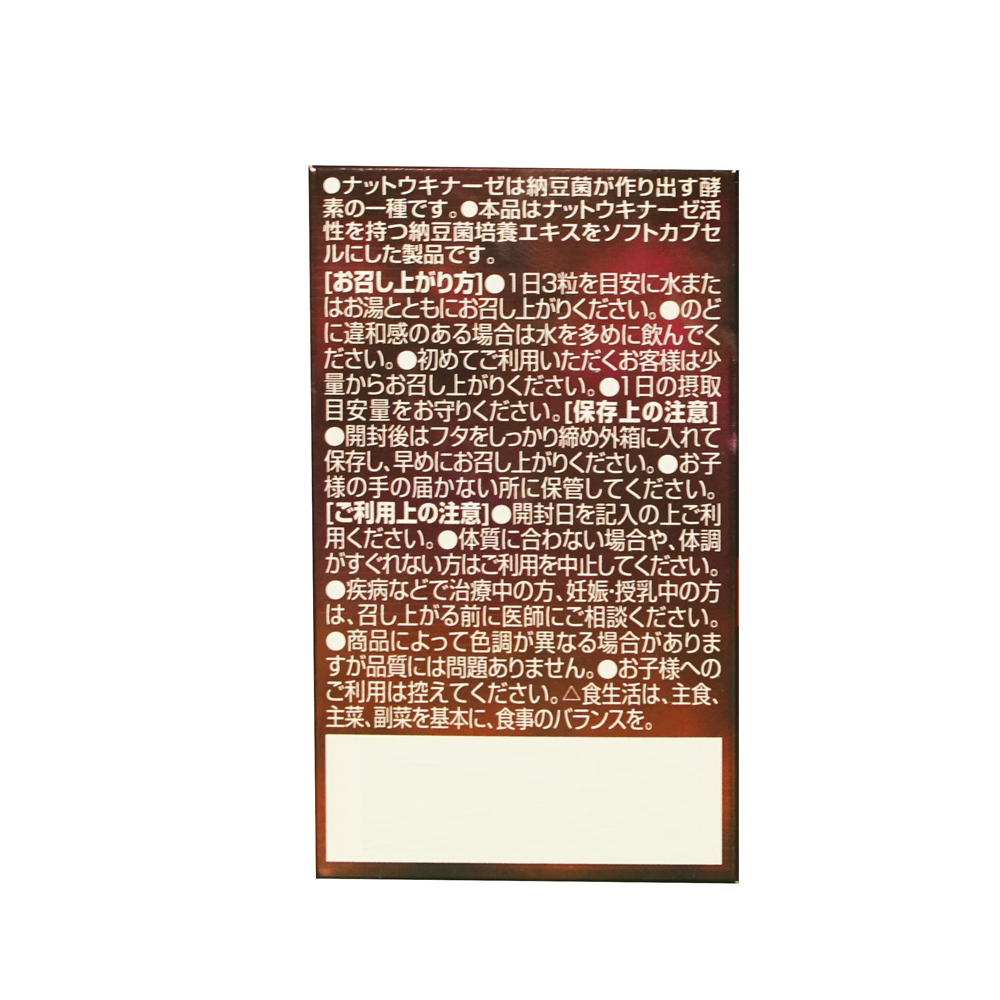 ●ナットウキナーゼは納豆菌が作り出す酵
素の一種です。●本品はナットウキナーゼ活
性を持つ納豆菌培養エキスをソフトカプセ
ルにした製品です。
[お召し上がり方]●1日3粒を目安に水また
はお湯とともにお召し上がりください。●のど
に違和感のある場合は水を多めに飲んでく
ださい。●初めてご利用いただくお客様は少
量からお召し上がりください。●1日の摂取
目安量をお守りください。[保存上の注意]
●開封後はフタをしっかり締め外箱に入れて
保存し、早めにお召し上がりください。●お子
様の手の届かない所に保管してください。
[ご利用上の注意]●開封日を記入の上ご利
用ください。●体質に合わない場合や、体調
がすぐれない方はご利用を中止してください。
●疾病などで治療中の方、妊娠・授乳中の方
は、召し上がる前に医師にご相談ください。
●商品によって色調が異なる場合がありま
すが品質には問題ありません。●お子様への
ご利用は控えてください。△食生活は、主食、
主菜、副菜を基本に、食事のバランスを。